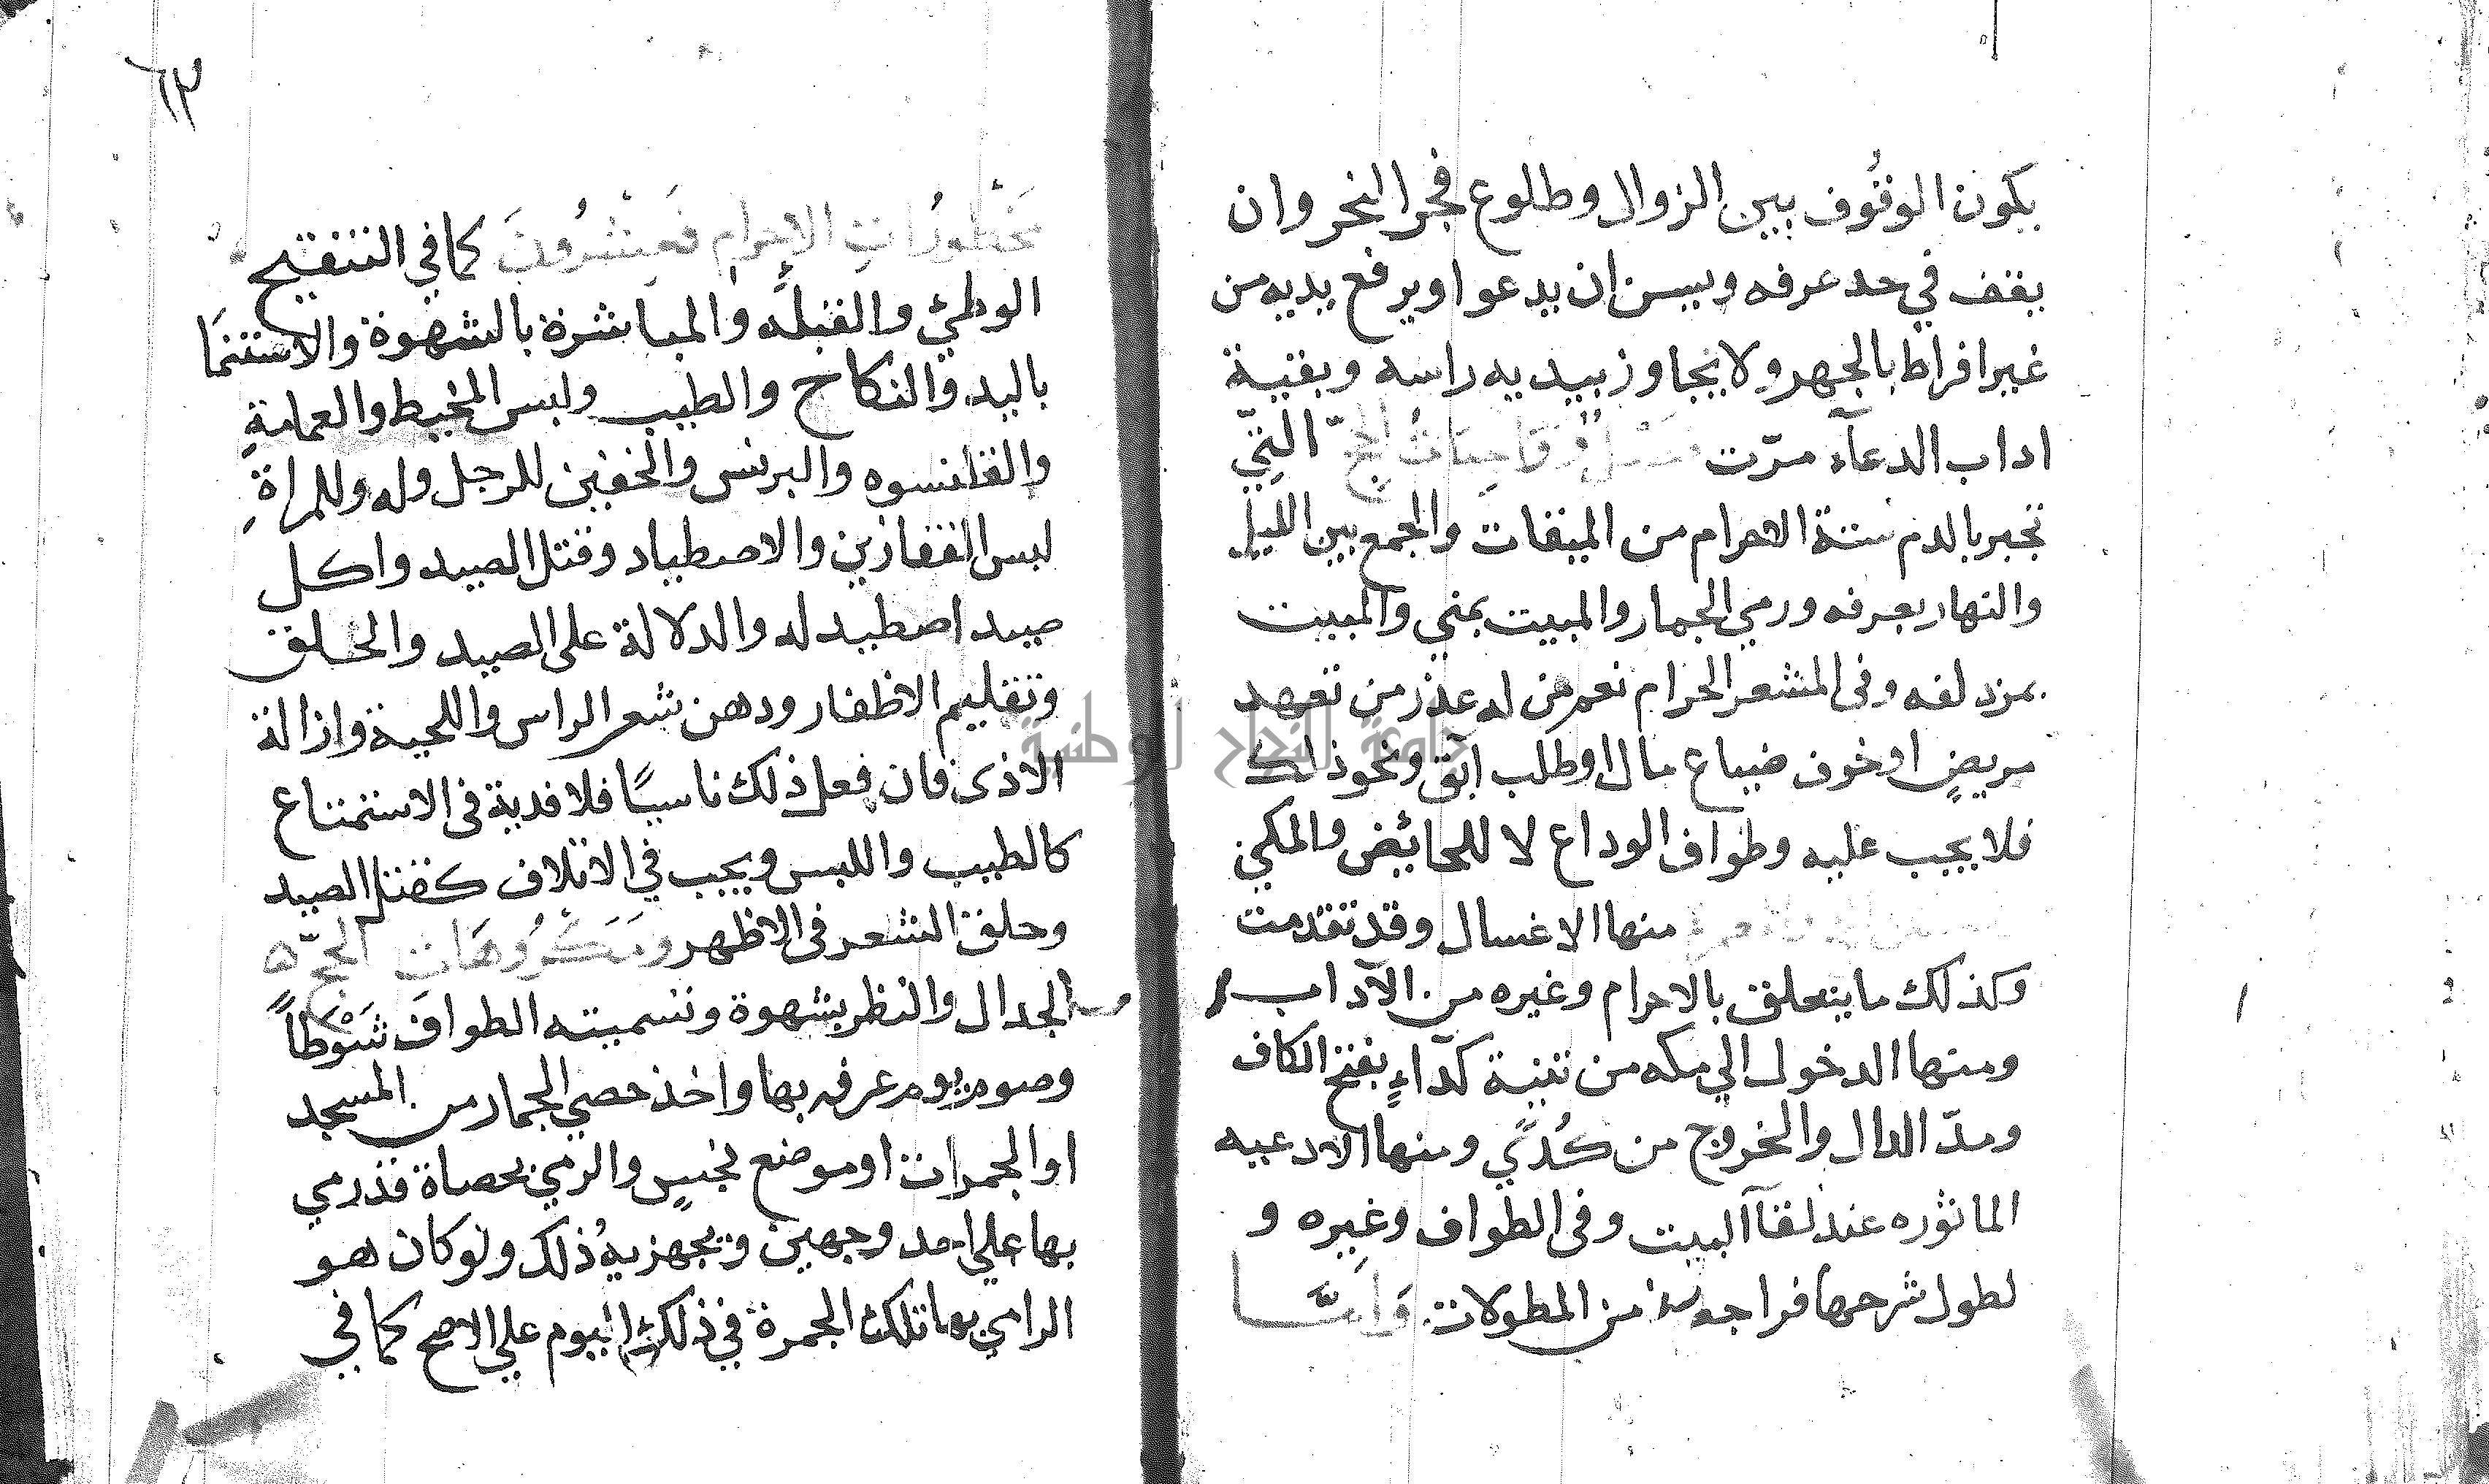 يكون الوقوف بين الزوال وطلوع فجر النحر وان
يقف في حد عرفه ويسن ان يدعوا ويرفع يديه من
غير افراط بالجهر ولا يجاوز بيديه راسه وبقية
اداب الدعآء مرّت وَاجِبَاتُ الحجّ التي
تجبر بالدم ستة الاحرام من الميقات والجمع بين الليل
والنهار بعرفه ورمي الجمار والمبيت بمني والمبيت
بمزدلفه وفى المشعر الحرام نعم من له عذر من تعهد
مريضٍ او خوف ضياع مال او طلب ابق ونحو ذلك
فلا يجب عليه وطواف الوداع لا للحائض والمكي
منها الاغسال وقد تقدمت
وكذلك ما يتعلق بالاحرام وغيره من الآداب
ومنها الدخول الي مكه من ثنية كدآءٍ بفتح الكاف
ومدّ الدال والخروج من كُدًي ومنها الادعيه
الماثوره عند لقآ البيت وفى الطواف وغيره و
لطول شرحها فراجعه من المطولات وَامَّا
٦٣
مَحْظُورَات الاحرام فَعِشْرُونَ كما في التنقيح
الوطئ والقبلَه والمباشرة بالشهوة والاستنمَا
باليد والنكاح والطيب ولبس المخيط والعمامةِ
والقلنسوه والبرنس والخفين للرجل وله وللمراةِ
لبس القفازين والاصطياد وقتل الصيد واكل
صيد اصطيد له والدلالة على الصيد والحلق
وتقليم الاظفار ودهن شعر الراس واللحية وازالة
الاذى فان فعل ذلك ناسيًا فلا فدية فى الاستمتاع
كالطيب واللبس ويجب في الاتلاف كقتل الصيد
وحلق الشعر فى الاظهر ومَكْرُوهَات الحجّ ٥
الجدال والنظر بشهوة وتسميته الطوافَ شَوْطاً
وصوم يوم عرفه بها واخذ حصي الجمار من المسجد
او الجمرات او موضع نجسٍ والرمي بحصاة قد رمي
بها علي احد وجهين ويجزيه ذلك ولو كان هو
الرامي بها تلك الجمرة في ذلك اليوم علي الاصح كما في
جامعة النجاح الوطنية